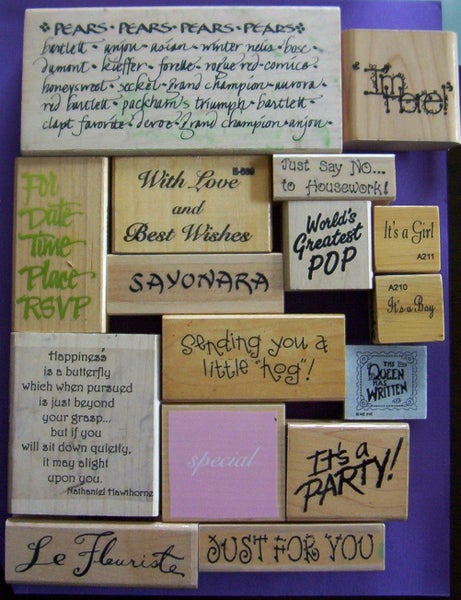 PEARS • PEARS • PEARS • PEARS
bartlett • anjou • asian • winter nelis • bosc •
dumont • kieffer • forelle • rogue red • comice •
honeysweet • seckel • grand champion • aurora •
red bartlett • packham's triumph • bartlett •
clapt favorite • devoe • grand champion • anjou •
"I'm
Here!"
For
Date
Time
Place
RSVP
With Love
and
Best Wishes
Just Say No...
to Housework!
World's
Greatest
POP
It's a Girl
A211
SAYONARA
A210
It's a Boy
Sending you a
little "hog"!
THE
QUEEN
HAS
WRITTEN
Happiness
is a butterfly
which when pursued
is just beyond
your grasp...
but if you
will sit down quietly,
it may alight
upon you.
Nathaniel Hawthorne
special
IT'S A
PARTY!
Le Fleuriste
JUST FOR YOU